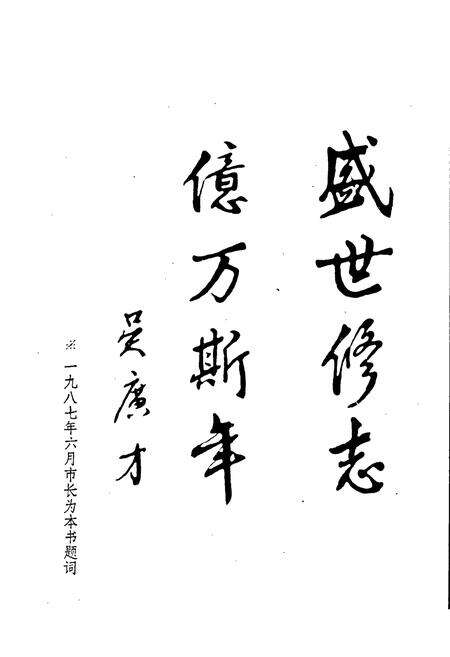 盛世修志
億万斯年
吴廣才
※一九八七年六月市长为本书题词